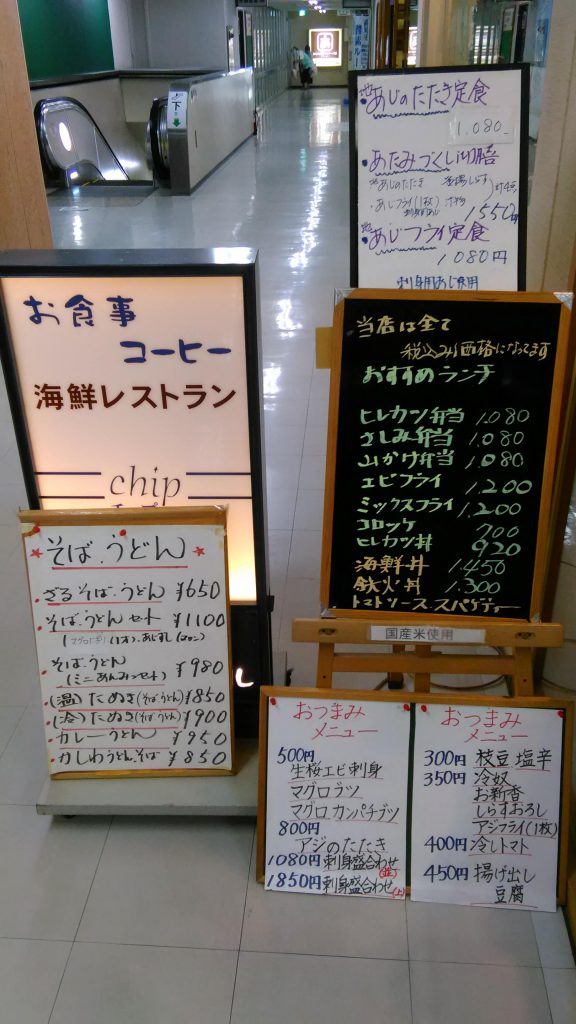 下
あじのたたき定食
1,080
あたみづくし御膳
あじのたたき
あじフライ(1枚)
1550
あじフライ定食
1080円
刺身用あじ使用
お食事
コーヒー
海鮮レストラン
chip
当店は全て
税込み価格になってます
おすすめランチ
ヒレカツ弁当 1,080
さしみ弁当 1,080
山かけ弁当 1,080
エビフライ 1,200
ミックスフライ 1,200
コロッケ 700
ヒレカツ丼 920
海鮮丼 1,450
鉄火丼 1,300
トマトソーススパゲティー
国産米使用
そば.うどん
ざるそば.うどん ¥650
そば.うどんセット ¥1100
そば.うどん
(ミニあんみつセット) ¥980
(温)たぬき(そば.うどん) ¥850
(冷)たぬき(そば.うどん) ¥900
カレーうどん ¥950
かしわうどん.そば ¥850
おつまみ
メニュー
500円
生桜エビ刺身
マグロブツ
マグロカンパチブツ
800円
アジのたたき
1080円刺身盛合わせ
1850円刺身盛合わせ(上)
おつまみ
メニュー
300円 枝豆 塩辛
350円 冷奴
お新香
しらすおろし
アジフライ(1枚)
400円 冷しトマト
450円 揚げ出し
豆腐